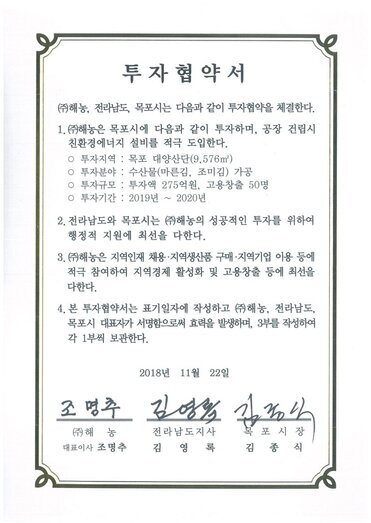 투자협약서
㈜해농, 전라남도, 목포시는 다음과 같이 투자협약을 체결한다.
1. ㈜해농은 목포시에 다음과 같이 투자하며, 공장 건립시
친환경에너지 설비를 적극 도입한다.
○ 투자지역 : 목포 대양산단(9,576㎡)
○ 투자분야 : 수산물(마른김, 조미김) 가공
○ 투자규모 : 투자액 275억원, 고용창출 50명
○ 투자기간 : 2019년 ~ 2020년
2. 전라남도와 목포시는 ㈜해농의 성공적인 투자를 위하여
행정적 지원에 최선을 다한다.
3. ㈜해농은 지역인재 채용·지역생산품 구매·지역기업 이용 등에
적극 참여하여 지역경제 활성화 및 고용창출 등에 최선을
다한다.
4. 본 투자협약서는 표기일자에 작성하고 ㈜해농, 전라남도,
목포시 대표자가 서명함으로써 효력을 발생하며, 3부를 작성하여
각 1부씩 보관한다.
2018년 11월 22일
조명추 김영록 김종식
㈜해농 전라남도지사 목포시장
대표이사 조명추 김영록 김종식